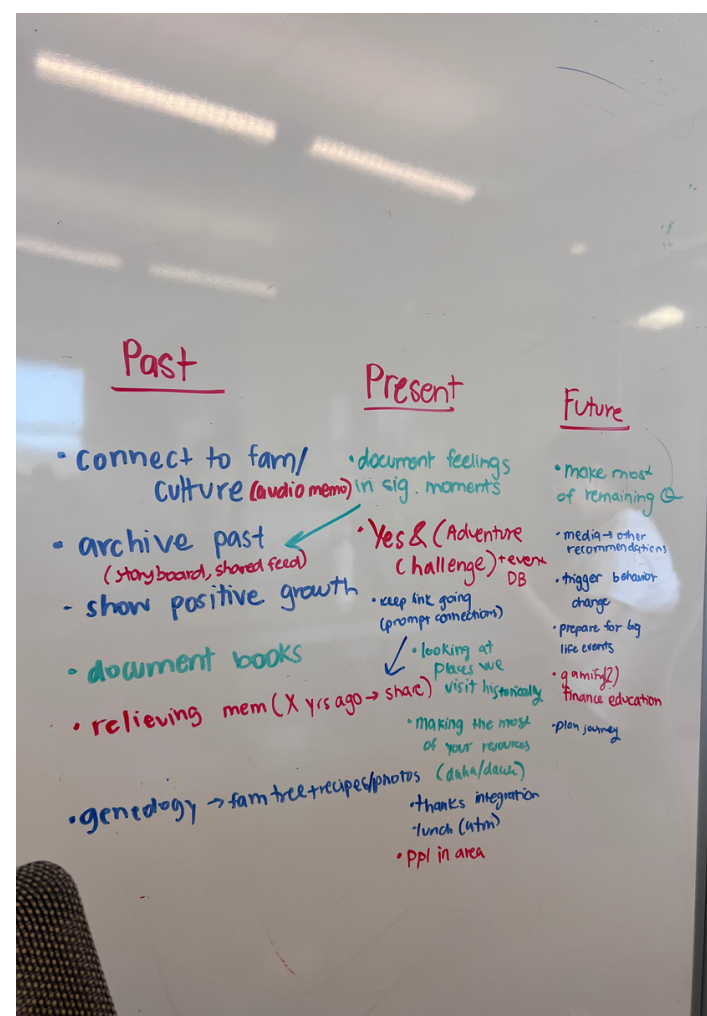 Past
• connect to fam/
culture (audio memo)
• archive past
(storyboard, shared feed)
- show positive growth
• document books
• relieving mem (X yrs ago → share)
• geneology → fam tree + recipes/photos
Present
• document feelings
in sig. moments
• Yes & (Adventure
Challenge) + event
DB
• keep link going
(prompt connections)
• looking at
places we
visit historically
• making the most
of your resources
• thanks integration
• lunch (atm)
• ppl in area
Future
• make most
of remaining
• media → other
recommendations
• trigger behavior
change
• prepare for big
life events
• gamify(?)
finance education
• plan journey